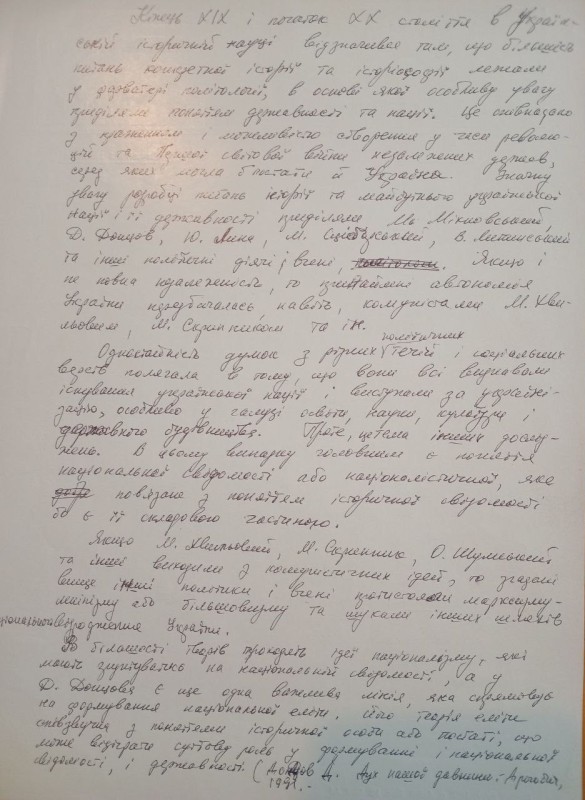 Кінець ХІХ і початок ХХ століття в Україн-
ській історичній науці відзначився тим, що більшість
питань конкретної історії та історіософії лежали
у фарватері політології, в основі якої особливу увагу
приділяли поняттям державності та нації. Це співпадало
з
і можливістю створення у часи револю-
цій та Першої світової війни незалежних держав,
серед яких могла б стати й Україна. Значну
увагу розробці питань історії та майбутнього української
нації і її державності приділяли М. Міхновський,
Д. Донцов, Ю. Липа, М. Сціборський, В. Липинський
та інші політичні діячі і вчені, . Якщо і
не повна незалежність, то принаймні автономія
України передбачалась, навіть, комуністами М. Хви-
льовим, М. Скрипником та ін.
політичних
Одностайність думок з різних течій і соціальних
верств полягала в тому, що вони всі визнавали
існування української нації і виступали за україні-
зацію, особливо у галузі освіти, науки, культури і
державного будівництва. Проте, це тема інших дослід-
жень. В цьому випадку головним є поняття
національної свідомості або націоналістичної, яка
повязана з поняттям історичної свідомості
бо є її складовою частиною.
Якщо М. Хвильовий, М. Скрипник, О. Шумський
та інші виходили з комуністичних ідей, то згадані
вище інші політики і вчені протистояли марксизму-
ленінізму або більшовизму та шукали інших шляхів
національного відродження України.
В більшості творів проходять ідеї націоналізму, які
мають ґрунтуватись на національній свідомості, а у
Д. Донцова є ще одна важлива лінія, яка спрямована
на формування національної еліти. Його теорія еліти
співзвучна з поняттям історичної особи або постаті, що
може відіграти суттєву роль у формуванні і національної
свідомості, і державності. (Донцов Д. Дух нашої давнини.- Дрогобич,
1991.-